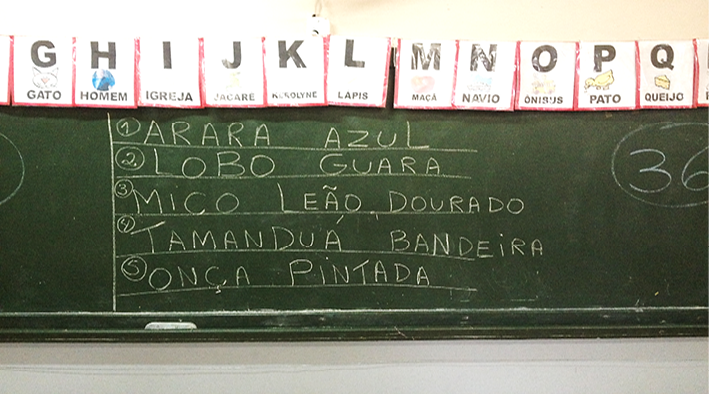 G H I J K L M N O P Q
GATO HOMEM IGREJA JACARÉ KEROLYNE LAPIS MAÇÃ NAVIO ÔNIBUS PATO QUEIJO
① ARARA AZUL
② LOBO GUARA
③ MICO LEÃO DOURADO
④ TAMANDUÁ BANDEIRA
⑤ ONÇA PINTADA
36